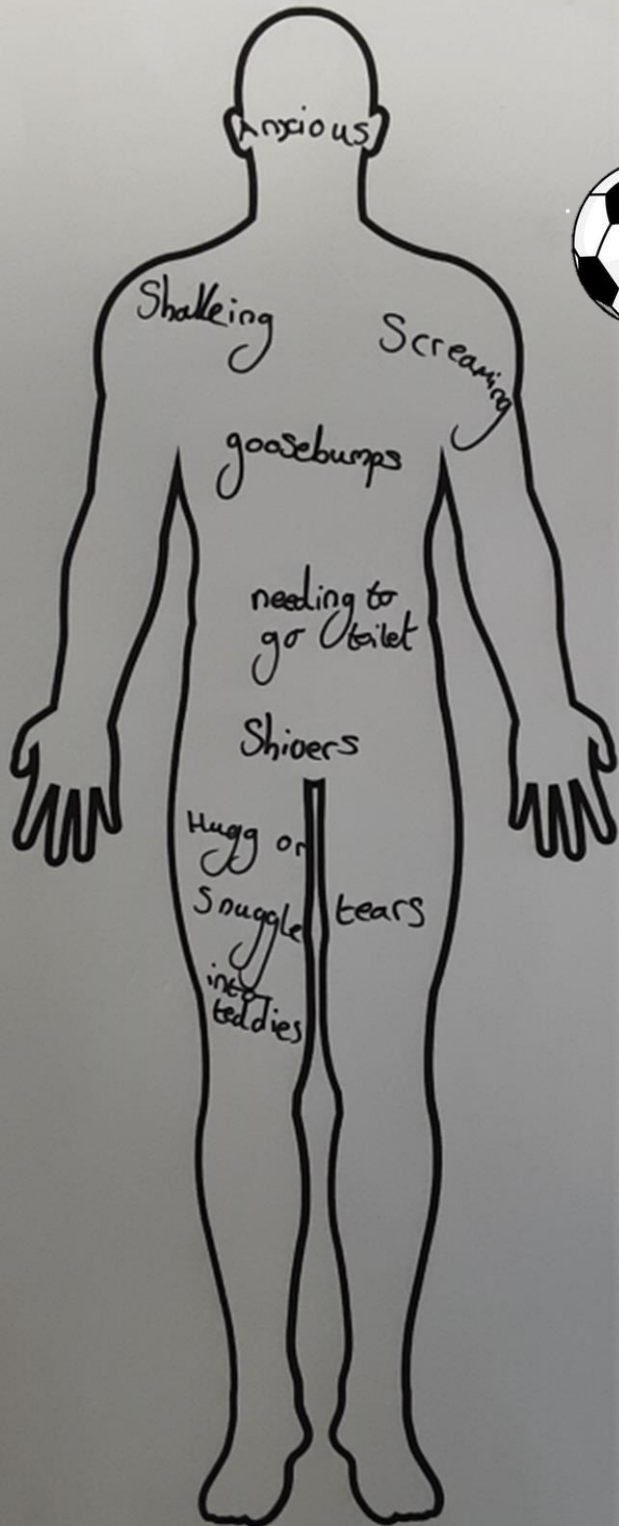 Anxious
Shakeing
Screaming
goosebumps
needing to
go toilet
Shivers
Hugg or
Snuggle
into
teddies
tears